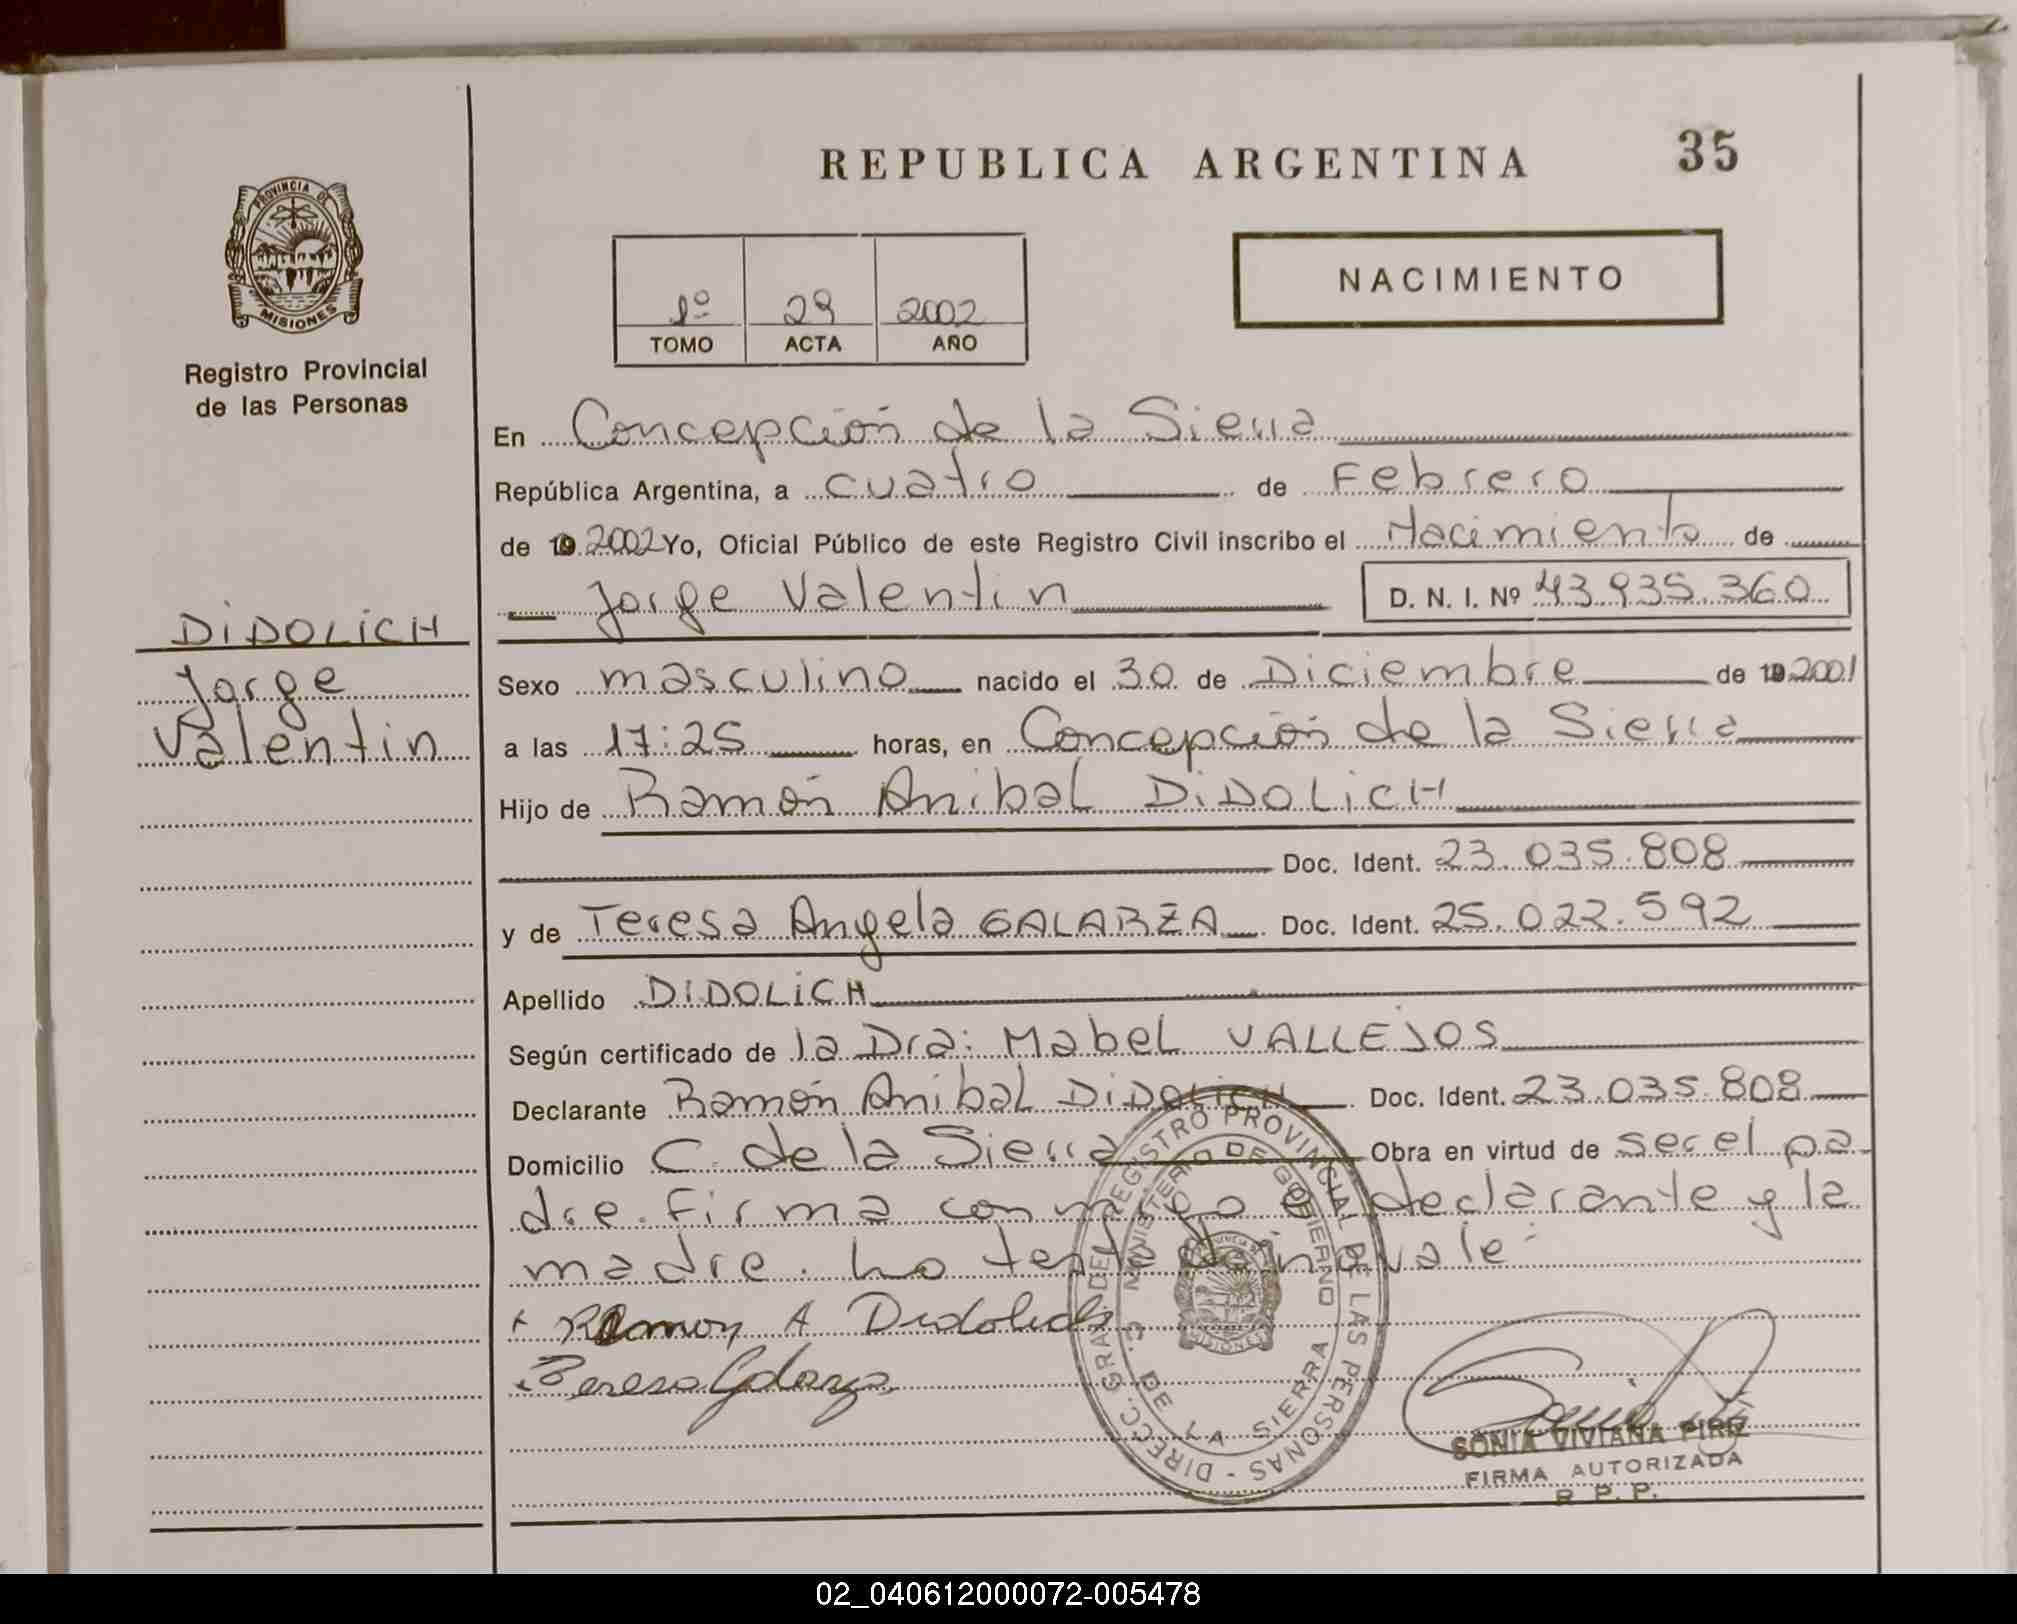 REPUBLICA ARGENTINA
35
PROVINCIA DE
MISIONES
Registro Provincial
de las Personas
NACIMIENTO
1º 29 2002
TOMO ACTA AÑO
En Concepción de la Sierra
República Argentina, a cuatro de Febrero
de 19 2002 Yo, Oficial Público de este Registro Civil inscribo el Nacimiento de
Jorge Valentin D. N. I. Nº 43.935.360
DiDOLiCH
Jorge
Valentin
Sexo masculino nacido el 30 de Diciembre de 19 2001
a las 17:25 horas, en Concepción de la Sierra
Hijo de Ramón Anibal DiDOLiCH
Doc. Ident. 23.035.808
y de Teresa Angela GALARZA Doc. Ident. 25.022.592
Apellido DiDOLiCH
Según certificado de la Dra: Mabel VALLEJOS
Declarante Ramón Anibal DiDOLiCH Doc. Ident. 23.035.808
Domicilio C. de la Sierra Obra en virtud de ser el pa-
dre. Firma conmigo el declarante y la
madre. Lo testado no vale:
Ramon A Didolich
Teresa Galarza
DIRECC. GRAL. DEL REGISTRO PROVINCIAL DE LAS PERSONAS -
MINISTERIO DE GOBIERNO
C. DE LA SIERRA
MISIONES
SONIA VIVIANA PIRIZ
FIRMA AUTORIZADA
R. P. P.
02_040612000072-005478